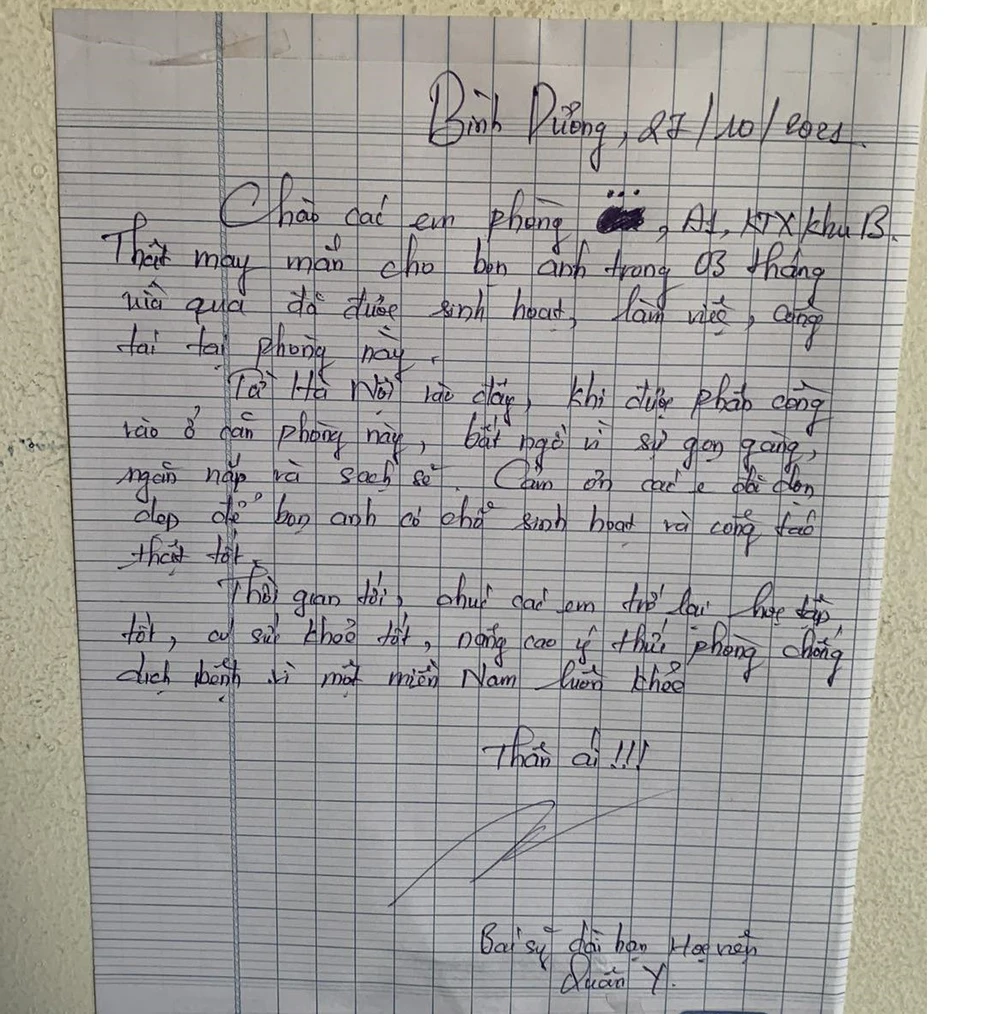 Bình Dương, 27/10/2021.
Chào các em phòng ..., A1, KTX khu B.
Thật may mắn cho bọn anh trong 03 tháng
vừa qua đã được sinh hoạt, làm việc, công
tác tại phòng này.
Từ Hà Nội vào đây, khi được phân công
vào ở căn phòng này, bất ngờ vì sự gọn gàng,
ngăn nắp và sạch sẽ. Cảm ơn các e đã dọn
dẹp để bọn anh có chỗ sinh hoạt và công tác
thật tốt.
Thời gian tới, chúc các em trở lại học tập
tốt, có sức khoẻ tốt, nâng cao ý thức phòng chống
dịch bệnh vì một miền Nam luôn khoẻ
Thân ái !!!
Bác sỹ dài hạn Học viện
Quân Y.